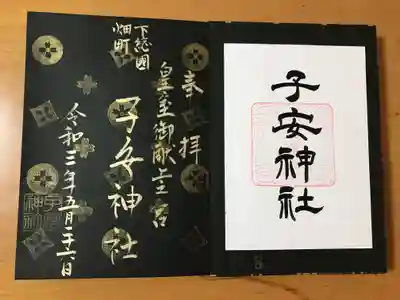 子安神社
奉拝
皇室御献上宮
下総國
畑町
子安神社
令和三年五月二十六日